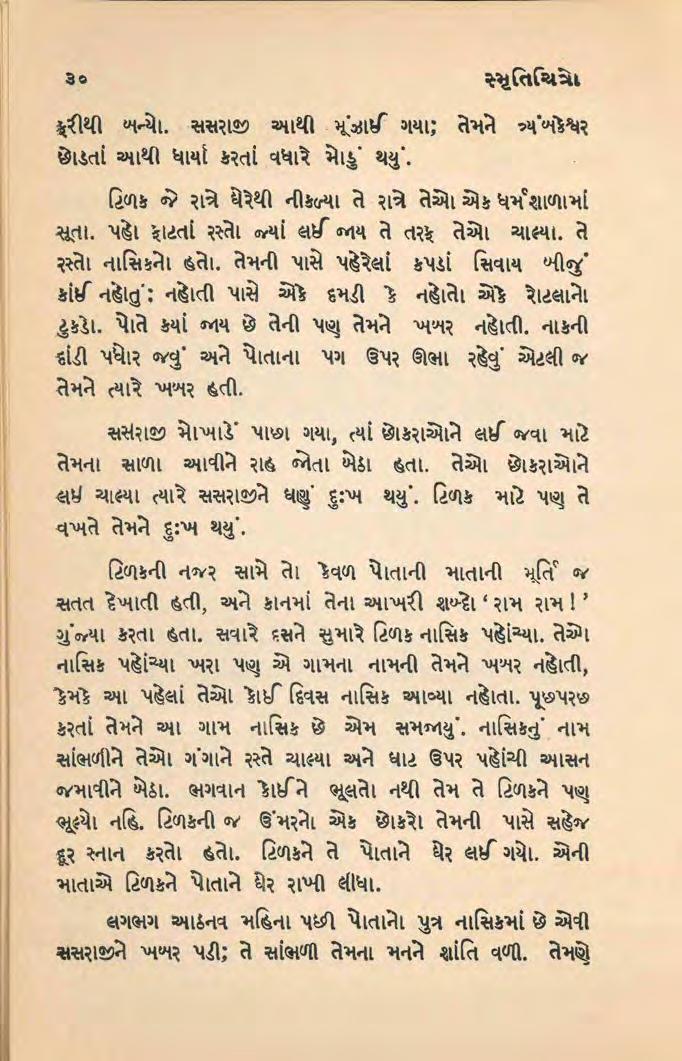 ૩૦ સ્મૃતિચિત્રો
ફરીથી બન્યો. સસરાજી આથી મૂંઝાઈ ગયા; તેમને ત્ર્યંબકેશ્વર
છોડતાં આથી ધાર્યા કરતાં વધારે મોડું થયું.
ટિળક જે રાત્રે ઘેરેથી નીકળ્યા તે રાત્રે તેઓ એક ધર્મશાળામાં
સૂતા. પહો ફાટતાં રસ્તો જ્યાં લઈ જાય તે તરફ તેઓ ચાલ્યા. તે
રસ્તો નાસિકનો હતો. તેમની પાસે પહેરેલાં કપડાં સિવાય બીજું
કાંઈ નહોતું: નહોતી પાસે એકે દમડી કે નહોતો એકે રોટલાનો
ટુકડો. પોતે ક્યાં જાય છે તેની પણ તેમને ખબર નહોતી. નાકની
દાંડી પધોર જવું અને પોતાના પગ ઉપર ઊભા રહેવું એટલી જ
તેમને ત્યારે ખબર હતી.
સસરાજી મોખાડે પાછા ગયા, ત્યાં છોકરાઓને લઈ જવા માટે
તેમના સાળા આવીને રાહ જોતા બેઠા હતા. તેઓ છોકરાઓને
લઈ ચાલ્યા ત્યારે સસરાજીને ઘણું દુઃખ થયું. ટિળક માટે પણ તે
વખતે તેમને દુઃખ થયું.
ટિળકની નજર સામે તો કેવળ પોતાની માતાની મૂર્તિ જ
સતત દેખાતી હતી, અને કાનમાં તેના આખરી શબ્દો ‘રામ રામ!’
ગુંજ્યા કરતા હતા. સવારે દસને સુમારે ટિળક નાસિક પહોંચ્યા. તેઓ
નાસિક પહોંચ્યા ખરા પણ એ ગામના નામની તેમને ખબર નહોતી,
કેમકે આ પહેલાં તેઓ કોઈ દિવસ નાસિક આવ્યા નહોતા. પૂછપરછ
કરતાં તેમને આ ગામ નાસિક છે એમ સમજાયું. નાસિકનું નામ
સાંભળીને તેઓ ગંગાને રસ્તે ચાલ્યા અને ઘાટ ઉપર પહોંચી આસન
જમાવીને બેઠા. ભગવાન કોઈને ભૂલતો નથી તેમ તે ટિળકને પણ
ભૂલ્યો નહિ. ટિળકની જ ઉંમરનો એક છોકરો તેમની પાસે સહેજ
દૂર સ્નાન કરતો હતો. ટિળકને તે પોતાને ઘેર લઈ ગયો. એની
માતાએ ટિળકને પોતાને ઘેર રાખી લીધા.
લગભગ આઠનવ મહિના પછી પોતાનો પુત્ર નાસિકમાં છે એવી
સસરાજીને ખબર પડી; તે સાંભળી તેમના મનને શાંતિ વળી. તેમણે